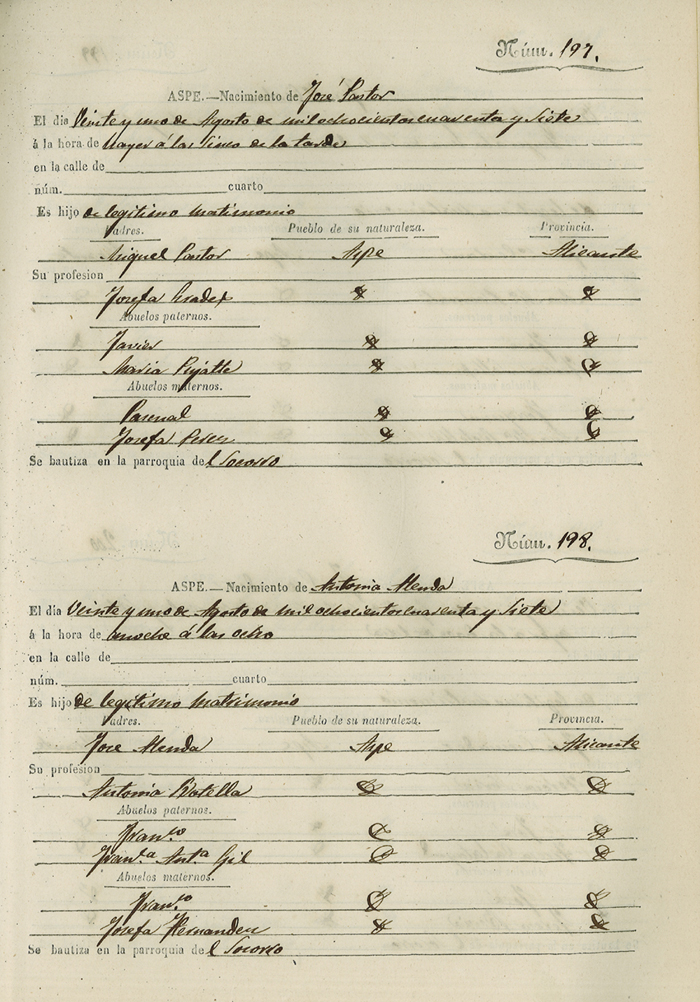 Núm. 197.
ASPE.—Nacimiento de José Pastor
El día Veinte y uno de Agosto de mil ochocientos cuarenta y Siete
á la hora de ayer á las cinco de la tarde
en la calle de
núm. cuarto
Es hijo de legitimo matrimonio
Padres. Pueblo de su naturaleza. Provincia.
Miguel Pastor Aspe Alicante
Su profesion
Josefa
Abuelos paternos.
Javier
Maria
Abuelos maternos.
Pascual
Josefa Perez
Se bautiza en la parroquia del Socorro
Núm. 198.
ASPE.—Nacimiento de Antonia Alenda
El día Veinte y uno de Agosto de mil ochocientos cuarenta y Siete
á la hora de anoche á las ocho
en la calle de
núm. cuarto
Es hijo de legitimo matrimonio
Padres. Pueblo de su naturaleza. Provincia.
Jose Alenda Aspe Alicante
Su profesion
Antonia Botella
Abuelos paternos.
Fran.co
Fran.ca Ant.a Gil
Abuelos maternos.
Fran.co
Josefa Hernandez
Se bautiza en la parroquia del Socorro